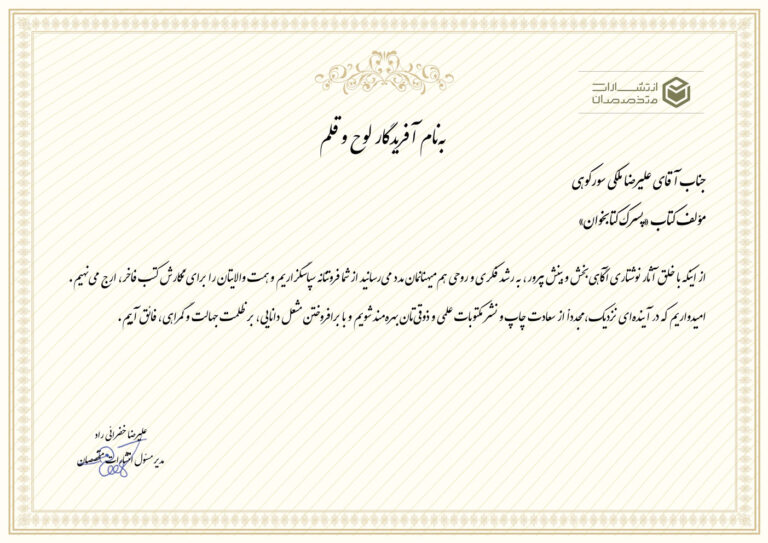 انتشارات
متخصصان
به‌نام آفریدگار لوح و قلم
جناب آقای علیرضا ملکی سورکوهی
مؤلف کتاب «پسرک کتابخوان»
از اینکه با خلق آثار نوشتاری آگاهی بخش و بینش پرور، به رشد فکری و روحی هم میهنانمان مدد می رسانید از شما فروتنانه سپاسگزاریم و همت والایتان را برای نگارش کتب فاخر، ارج می نهیم.
امیدواریم که در آینده‌ای نزدیک، مجدداً از سعادت چاپ و نشر مکتوبات علمی و ذوقی‌تان بهره‌مند شویم و با برافروختن مشعل دانایی، بر ظلمت جهالت و گمراهی، فائق آییم.
علیرضا خضرائی راد
مدیر مسئول انتشارات متخصصان